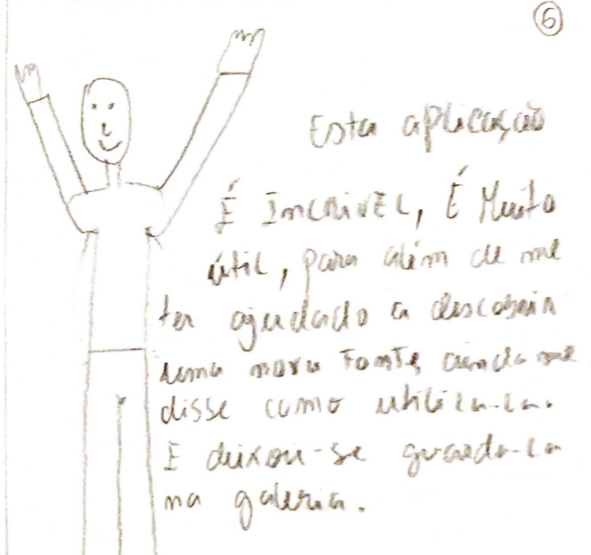 6
Esta aplicação
É Incrível, É Muito
útil, para além de me
ter ajudado a descobrir
uma nova fonte, ainda me
disse como utiliza-la.
E deixou-se guarda-la
na galeria.